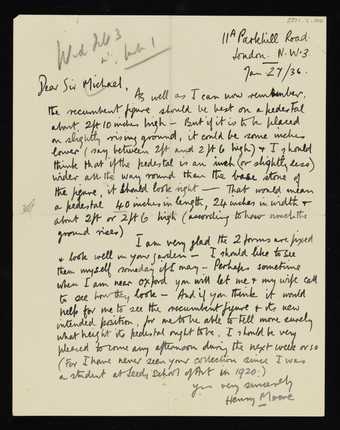 11A Parkhill Road
London. N.W.3.
Jan 27/36.
Dear Sir Michael,
As well as I can now remember,
the recumbent figure should be best on a pedestal
about 2ft 10 inches high – But if it is to be placed
on slightly rising ground, it could be some inches
lower (say between 2ft and 2ft 6 high) & I should
think that if the pedestal is an inch (or slightly less)
wider all the way round than the base stone of
the figure, it should look right — That would mean
a pedestal 40 inches in length, 24 inches in width &
about 2ft or 2ft 6 high (according to how much the
ground rises)
I am very glad the 2 forms are fixed
& look well in your garden – I should like to see
them myself someday if I may – Perhaps sometime
when I am near Oxford you will let me & my wife call
to see how they look – And if you think it would
help for me to see the recumbent figure & its new
intended position, for me to be able to tell more surely
what height its pedestal ought to be, I should be very
pleased to come any afternoon during the next week or so
(For I have never seen your collection since I was
a student at Leeds School of Art in 1920.)
Yrs very sincerely
Henry Moore